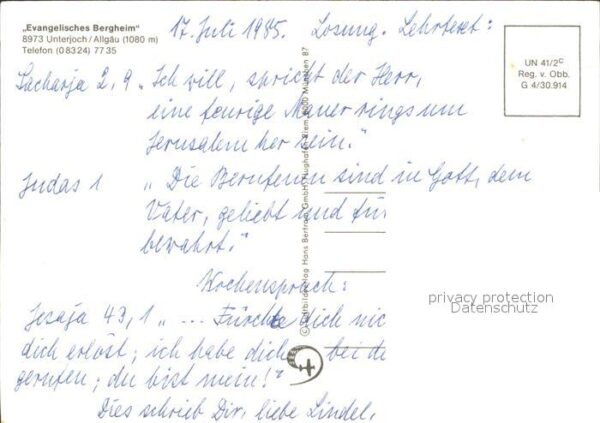 „Evangelisches Bergheim“
8973 Unterjoch/Allgäu (1080 m)
Telefon (0 83 24) 77 35
17. Juli 1985. Losung. Lehrtext:
UN 41/2c
Reg. v. Obb.
G 4/30.914
Sacharja 2,9 „Ich will, spricht der Herr,
eine feurige Mauer rings um
Jerusalem her sein.“
Judas 1 „Die Berufenen sind in Gott, dem
Vater, geliebt und für
bewahrt.“
Wochenspruch:
Jesaja 43,1 „... Fürchte dich nic
dich erlöst; ich habe dich bei de
gerufen; du bist mein!“
Dies schrieb Dir, liebe Lindel,
Hans Bertram GmbH, Flughafen-Riem, 8000 München 87
privacy protection
Datenschutz